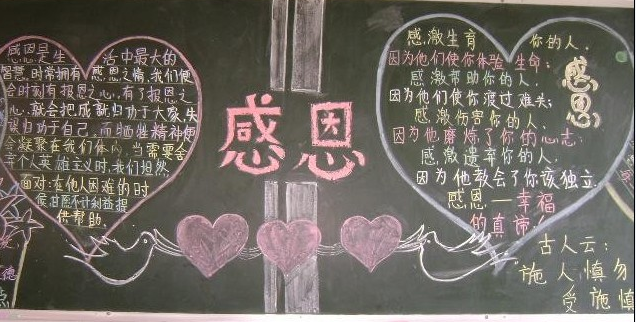 感恩是生活中最大的
智慧,时常拥有感恩之情,我们便
会时刻有报恩之心,有了报恩之
心,就会把成就归功于大家,失
误归功于自己,而牺牲精神便
会凝聚在我们体内,当需要舍
弃个人英雄主义时,我们坦然
面对;在他人困难的时
候,甘愿不计利益提
供帮助
感恩
感激生育你的人,
因为他们使你体验生命;
感激帮助你的人,
因为他们使你渡过难关;
感激伤害你的人,
因为他磨炼了你的心志;
感激遗弃你的人,
因为他教会了你该独立.
感恩—幸福
的真谛
感恩
古人云:
施人慎勿
受施慎
德